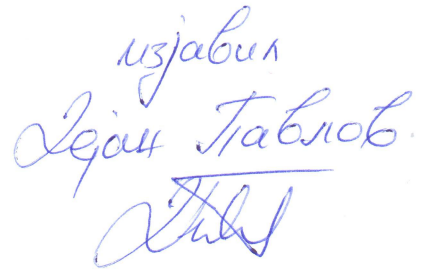 изјавил
Дејан Павлов